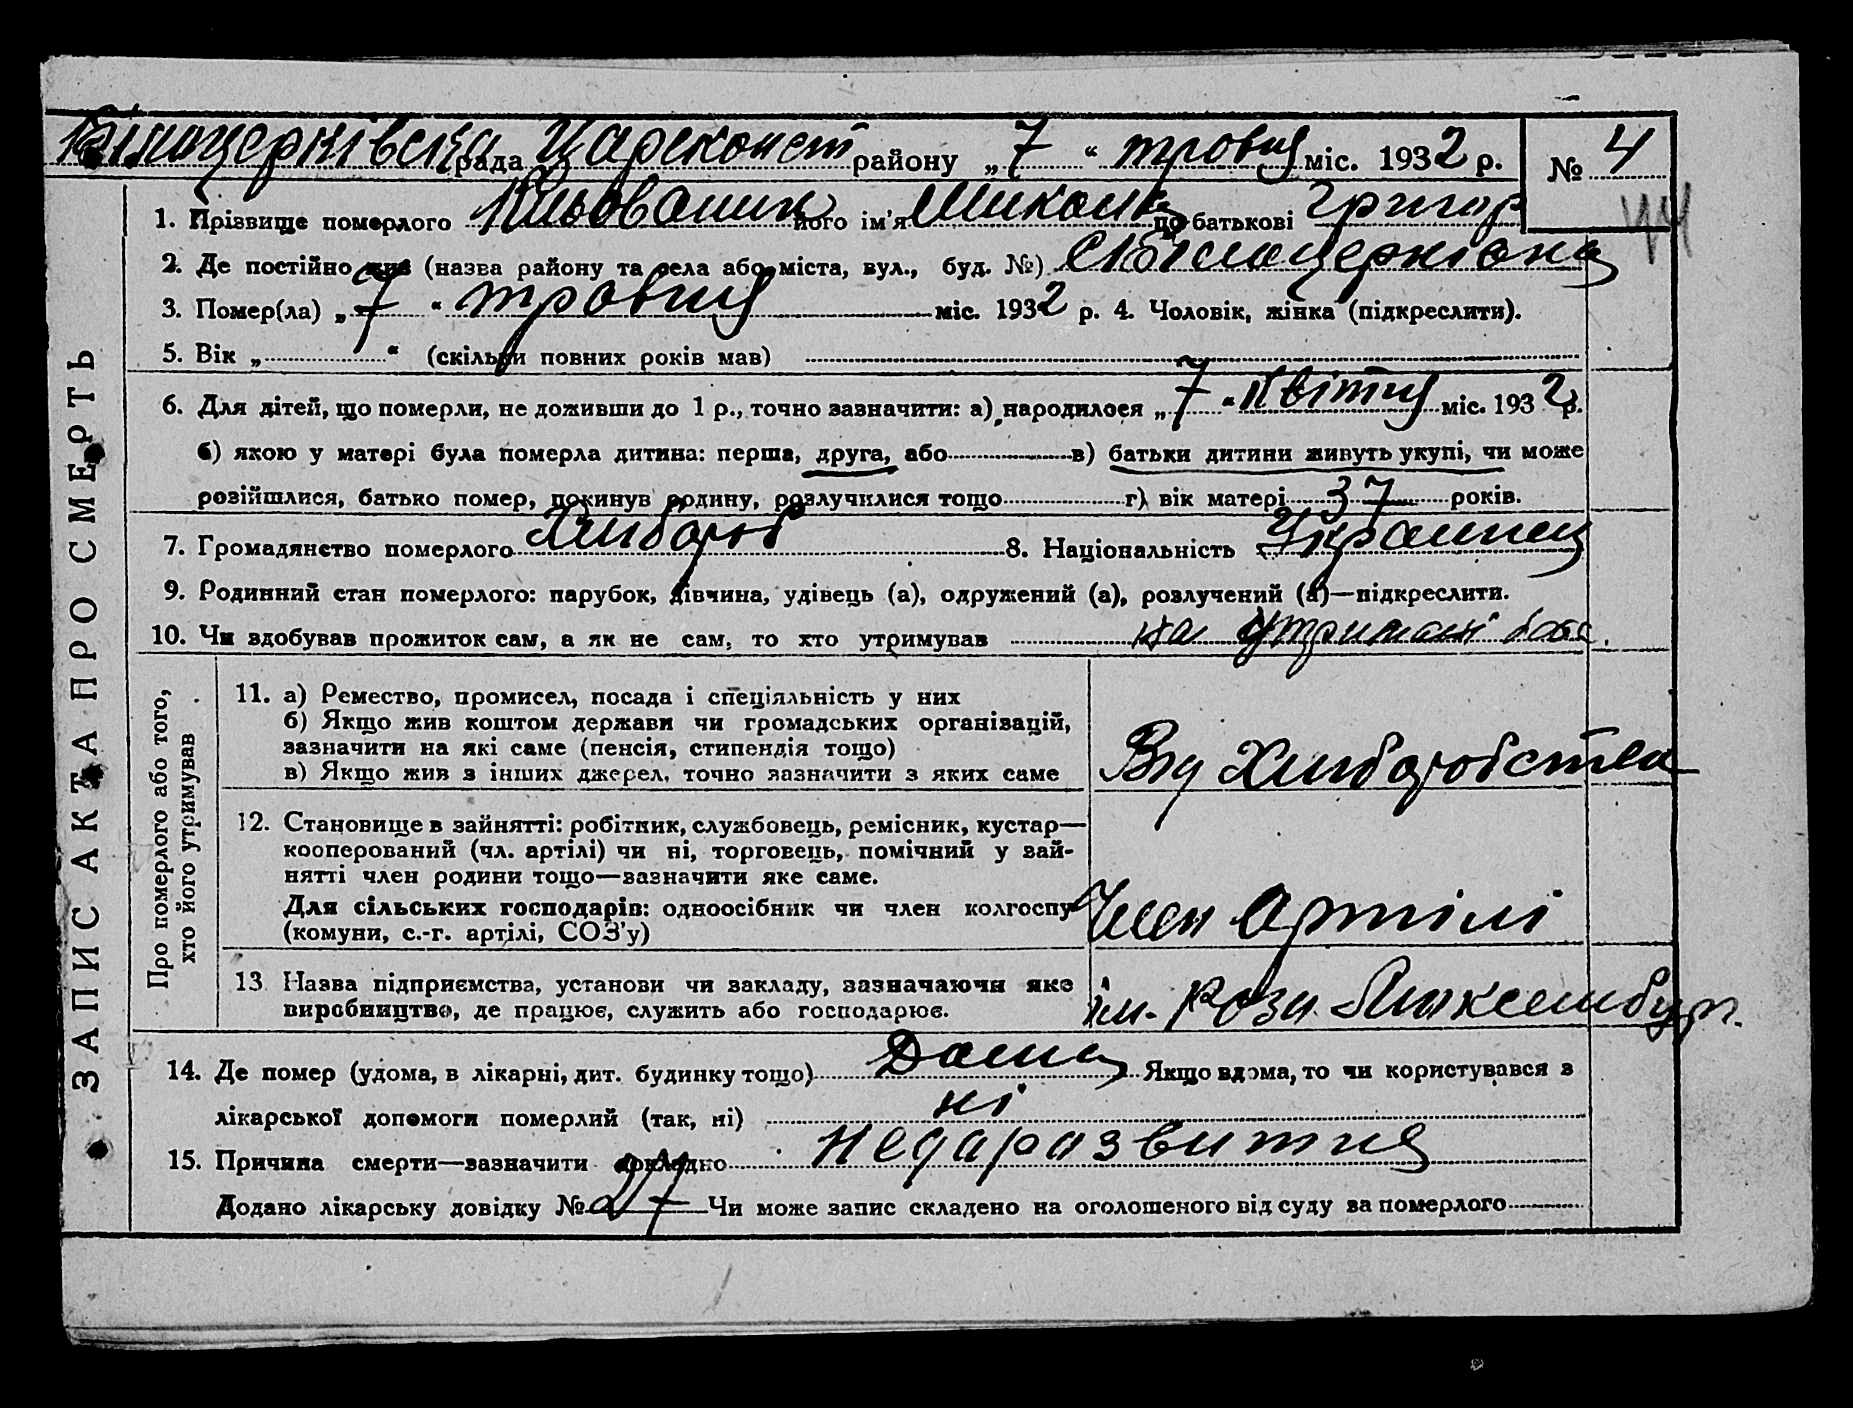 Білоцерківська рада Цареконст району „ 7 “ травня міс. 1932 р. № 4
1. Прізвище померлого його ім'я Микола по батькові Григор
2. Де постійно жив (назва району та села або міста, вул., буд. №) с Білоцерківка
3. Помер(ла) „ 7 “ травня міс. 1932 р. 4. Чоловік, жінка (підкреслити).
5. Вік „ “ (скільки повних років мав)
6. Для дітей, що померли, не доживши до 1 р., точно зазначити: а) народилося „ 7 “ квітня міс. 1932 р.
б) якою у матері була померла дитина: перша, друга, або в) батьки дитини живуть укупі, чи може
розійшлися, батько помер, покинув родину, розлучилися тощо г) вік матері 37 років.
7. Громадянство померлого Хлибороб 8. Національність Украинец
9. Родинний стан померлого: парубок, дівчина, удівець (а), одружений (а), розлучений (а)—підкреслити.
10. Чи здобував прожиток сам, а як не сам, то хто утримував на утримані
ЗАПИС АКТА ПРО СМЕРТЬ
Про померлого або того,
хто його утримував
11. а) Ремество, промисел, посада і спеціяльність у них
б) Якщо жив коштом держави чи громадських організацій,
зазначити на які саме (пенсія, стипендія тощо)
в) Якщо жив з інших джерел, точно зазначити з яких саме
Від Хлиборобства
12. Становище в зайнятті: робітник, службовець, ремісник, кустар—
кооперований (чл. артілі) чи ні, торговець, помічний у зай-
нятті член родини тощо—зазначити яке саме.
Для сільських господарів: одноосібник чи член колгоспу
(комуни, с.-г. артілі, СОЗ'у)
Член Артілі
13 Назва підприємства, установи чи закладу, зазначаючи яке
виробництво, де працює, служить або господарює.
ім. Рози Люксембург.
14. Де помер (удома, в лікарні, дит. будинку тощо) Дома Якщо вдома, то чи користувався з
лікарської допомоги померлий (так, ні) ні
15. Причина смерти—зазначити докладно недаразвития
Додано лікарську довідку № 27 Чи може запис складено на оголошеного від суду за померлого